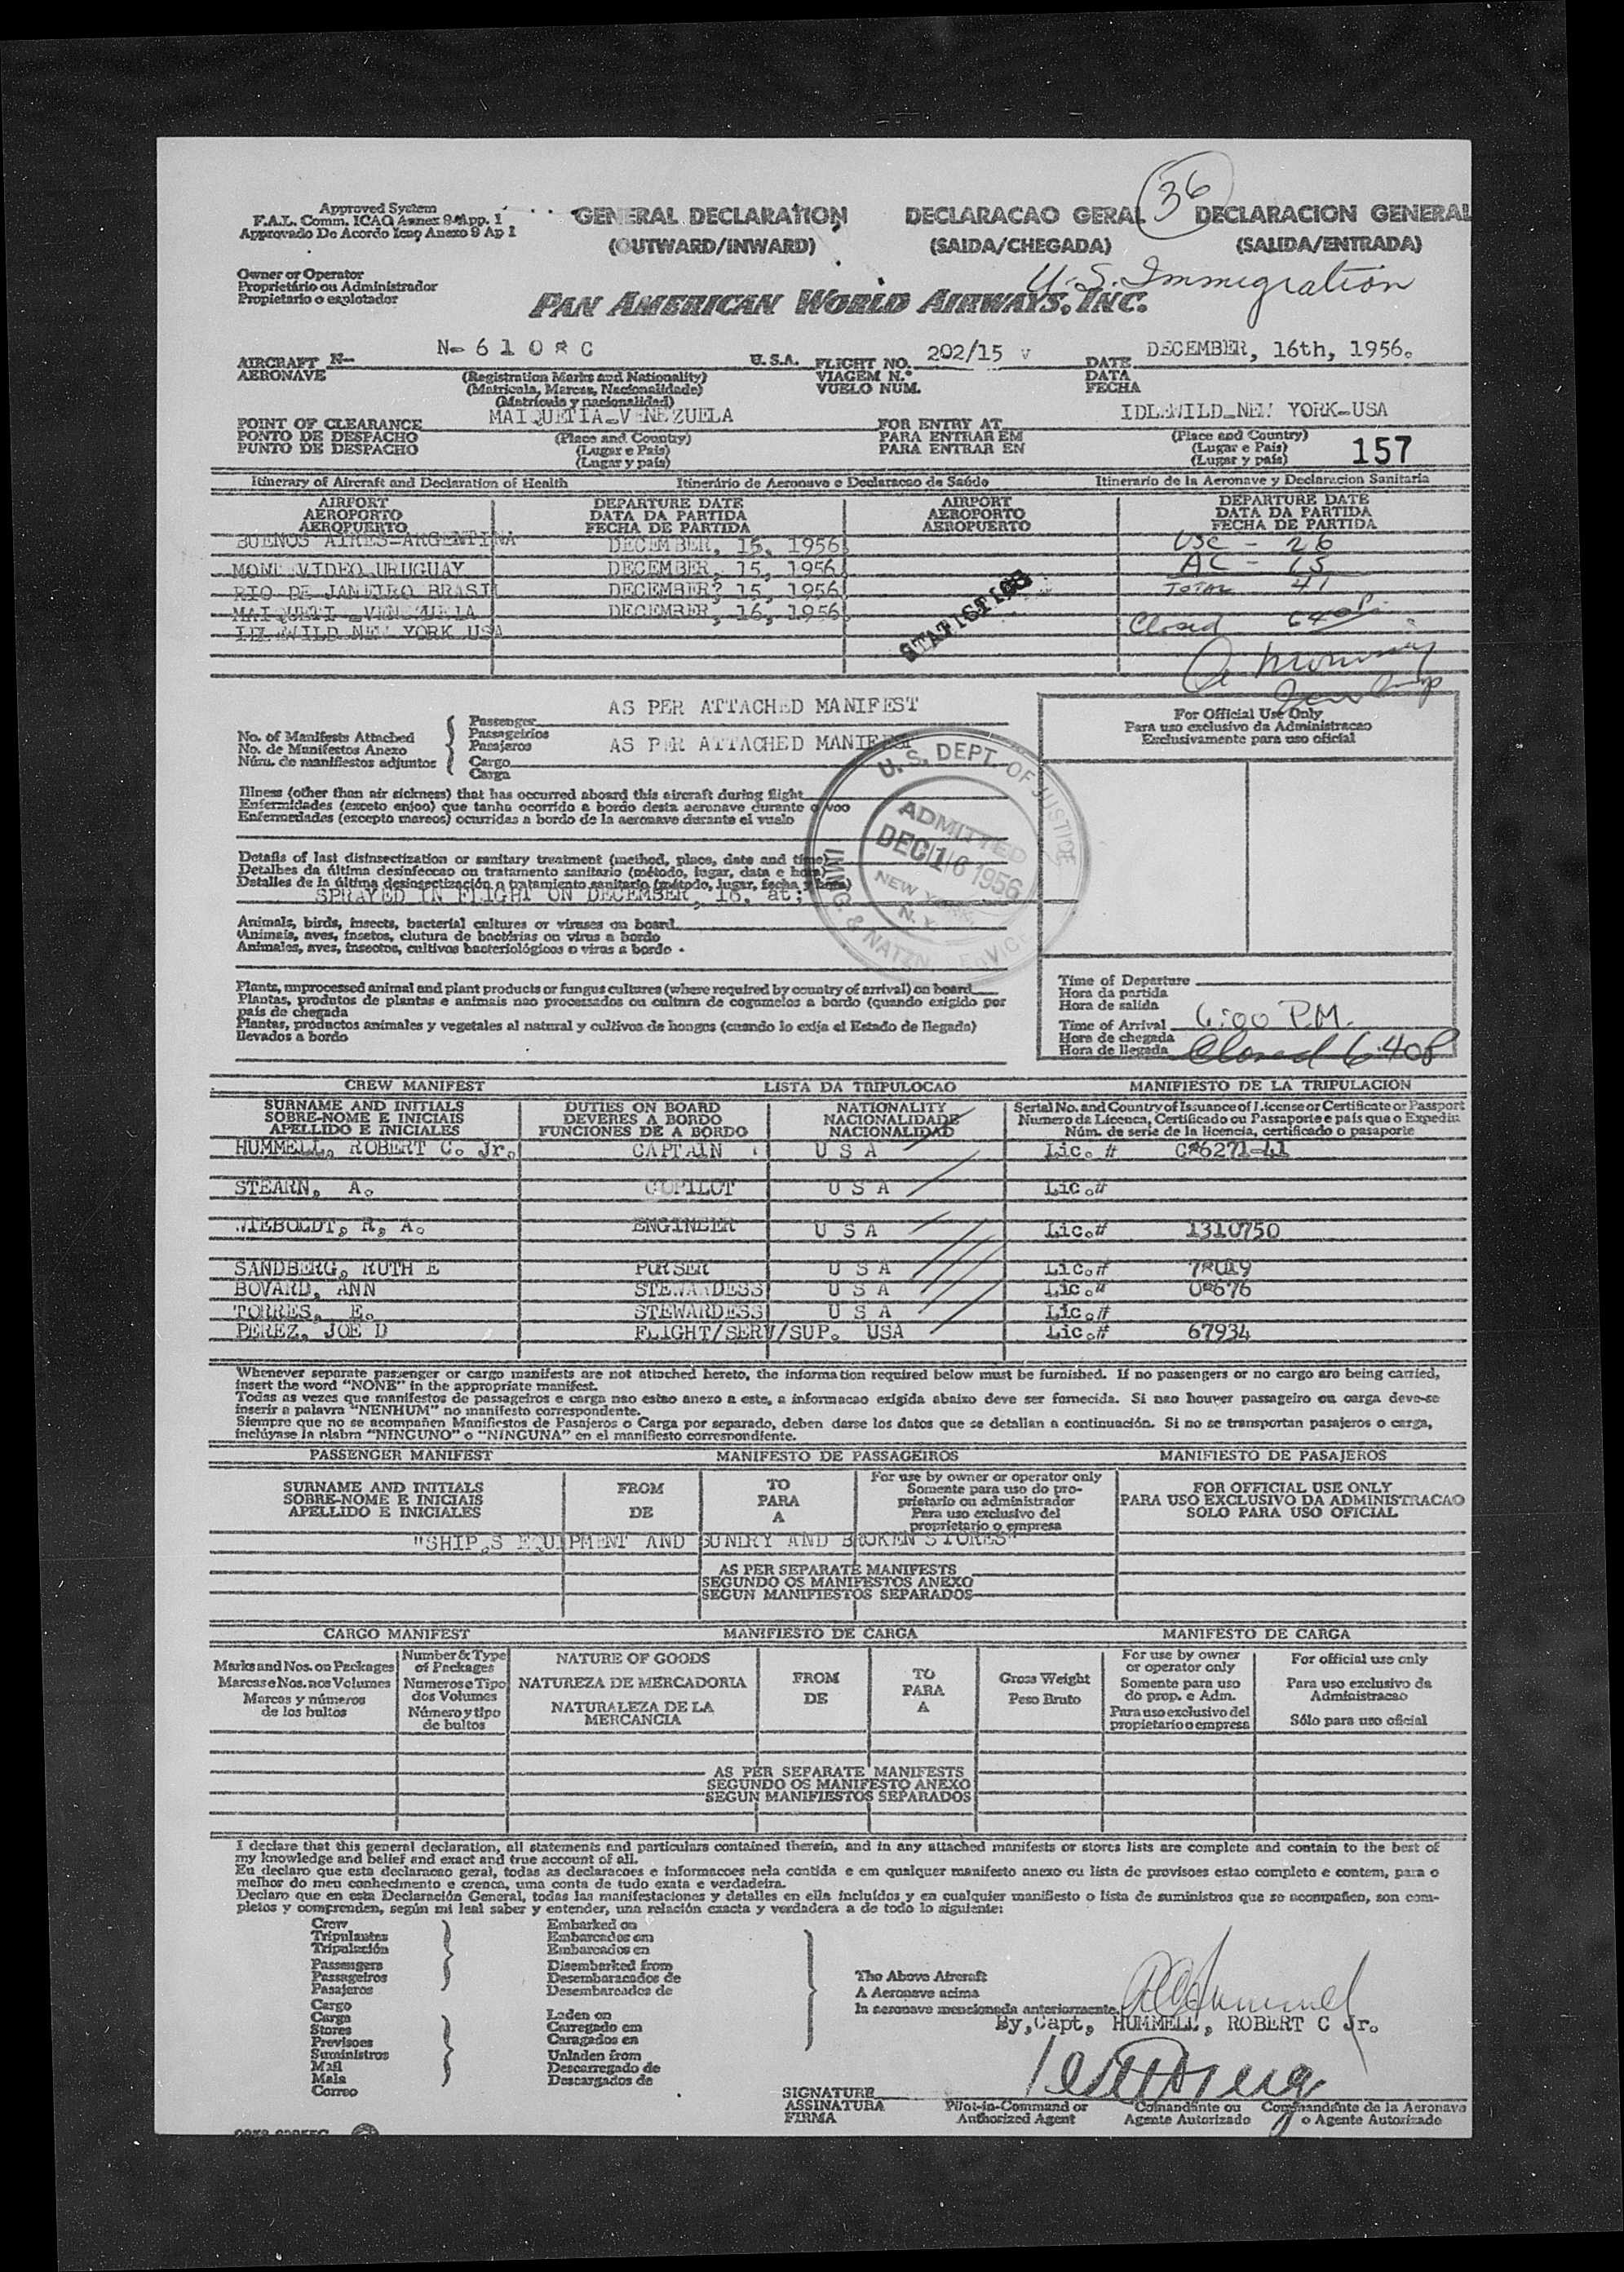 36
Approved System
F.A.L. Comm. ICAO Annex 9-App. 1
Approvado De Acordo Icao Anexo 9 Ap 1
GENERAL DECLARATION
(OUTWARD/INWARD)
DECLARACAO GERAL
(SAIDA/CHEGADA)
DECLARACION GENERAL
(SALIDA/ENTRADA)
U.S. Immigration
Owner or Operator
Proprietário ou Administrador
Propietario o explotador
PAN AMERICAN WORLD AIRWAYS, INC.
AIRCRAFT N-
AERONAVE
U.S.A.
(Registration Marks and Nationality)
(Matricula, Marcas, Nacionalidade)
(Matrícula y nacionalidad)
FLIGHT NO. 202/15
VIAGEM N.º
VUELO NUM.
DATE DECEMBER, 16th, 1956.
DATA
FECHA
POINT OF CLEARANCE MAIQUETIA-VENEZUELA
PONTO DE DESPACHO
PUNTO DE DESPACHO
(Place and Country)
(Lugar e Pais)
(Lugar y país)
FOR ENTRY AT IDLEWILD-NEW YORK-USA
PARA ENTRAR EM
PARA ENTRAR EN
(Place and Country)
(Lugar e Pais)
(Lugar y país)
157
Itinerary of Aircraft and Declaration of Health Itinerário de Aeronave e Declaracao da Saúde Itinerario de la Aeronave y Declaracion Sanitaria
AIRPORT DEPARTURE DATE AIRPORT DEPARTURE DATE
AEROPORTO DATA DA PARTIDA AEROPORTO DATA DA PARTIDA
AEROPUERTO FECHA DE PARTIDA AEROPUERTO FECHA DE PARTIDA
BUENOS AIRES-ARGENTINA DECEMBER, 15, 1956. USC - 26
MONTEVIDEO URUGUAY DECEMBER, 15, 1956. AC - 15
RIO DE JANEIRO BRASIL DECEMBER? 15, 1956. TOTAL 41
MAIQUETI VENEZUELA DECEMBER, 16, 1956. Closed 640P
IDLEWILD NEW YORK USA
STATISTICS
No. of Manifests Attached
No. de Manifestos Anexo
Núm. de manifiestos adjuntos
Passenger AS PER ATTACHED MANIFEST
Passageidios
Pasajeros
Cargo AS PER ATTACHED MANIFEST
Carga
For Official Use Only
Para uso exclusivo da Administracao
Exclusivamente para uso oficial
U. S. DEPT. OF JUSTICE
ADMITTED
DEC 16 1956
NEW YORK,
N. Y.
IMMIG. & NATZN. SERVICE
Illness (other than air sickness) that has occurred aboard this aircraft during flight
Enfermidades (exceto enjoo) que tenha ocorrido a bordo desta aeronave durante o voo
Enfermedades (excepto mareos) ocurridas a bordo de la aeronave durante el vuelo
Details of last disinsectization or sanitary treatment (method, place, date and time)
Detalhes da última desinfeccao ou tratamento sanitario (método, lugar, data e hora)
Detalles de la última desinsectización o tratamiento sanitario (método, lugar, fecha y hora)
SPRAYED IN FLIGHT ON DECEMBER, 16, at;
Animals, birds, insects, bacterial cultures or viruses on board
Animais, aves, insetos, clutura de bactérias ou virus a bordo
Animales, aves, insectos, cultivos bacteriológicos o virus a bordo
Plants, unprocessed animal and plant products or fungus cultures (where required by country of arrival) on board
Plantas, produtos de plantas e animais nao processados ou cultura de cogumelos a bordo (quando exigido por
país de chegada
Plantas, productos animales y vegetales al natural y cultivos de hongos (cuando lo exija el Estado de llegada)
llevados a bordo
Time of Departure
Hora da partida
Hora de salida
Time of Arrival 6:00 P.M.
Hora de chegada
Hora de llegada Closed 6:40P
CREW MANIFEST LISTA DA TRIPULOCAO MANIFIESTO DE LA TRIPULACION
SURNAME AND INITIALS DUTIES ON BOARD NATIONALITY Serial No. and Country of Issuance of License or Certificate or Passport
SOBRE-NOME E INICIAIS DEVERES A BORDO NACIONALIDADE Numero da Licenca, Certificado ou Passaporte e país que o Expediu
APELLIDO E INICIALES FUNCIONES DE A BORDO NACIONALIDAD Núm. de serie de la licencia, certificado o pasaporte
HUMMELL, ROBERT C. Jr. CAPTAIN U S A Lic. # C*6271-41
STEARN, A. COPILOT U S A Lic.#
WIEBOLDT, R, A. ENGINEER U S A Lic.# 1310750
SANDBERG, RUTH E PURSER U S A Lic.#
BOVARD, ANN STEWARDESS U S A Lic.#
TORRES, E. STEWARDESS U S A Lic.#
PEREZ, JOE D FLIGHT/SERV/SUP. USA Lic.# 67934
Whenever separate passenger or cargo manifests are not attached hereto, the information required below must be furnished. If no passengers or no cargo are being carried,
insert the word "NONE" in the appropriate manifest.
Todas as vezes que manifestos de passageiros e carga nao estao anexo a este, a informacao exigida abaixo deve ser fornecida. Si nao houver passageiro ou carga deve-se
inserir a palavra "NENHUM" no manifesto correspondente.
Siempre que no se acompañen Manifiestos de Pasajeros o Carga por separado, deben darse los datos que se detallan a continuación. Si no se transportan pasajeros o carga,
inclúyase la plabra "NINGUNO" o "NINGUNA" en el manifiesto correspondiente.
PASSENGER MANIFEST MANIFESTO DE PASSAGEIROS MANIFIESTO DE PASAJEROS
SURNAME AND INITIALS
SOBRE-NOME E INICIAIS
APELLIDO E INICIALES
FROM
DE
TO
PARA
A
For use by owner or operator only
Somente para uso do pro-
prietario ou administrador
Para uso exclusivo del
proprietario o empresa
FOR OFFICIAL USE ONLY
PARA USO EXCLUSIVO DA ADMINISTRACAO
SOLO PARA USO OFICIAL
"SHIP,S EQUIPMENT AND SUNDRY AND BROKEN STORES"
AS PER SEPARATE MANIFESTS
SEGUNDO OS MANIFESTOS ANEXO
SEGUN MANIFIESTOS SEPARADOS
CARGO MANIFEST MANIFIESTO DE CARGA MANIFESTO DE CARGA
Marks and Nos. on Packages
Marcas e Nos. nos Volumes
Marcas y números
de los bultos
Number & Type
of Packages
Numeros e Tipo
dos Volumes
Número y tipo
de bultos
NATURE OF GOODS
NATUREZA DE MERCADORIA
NATURALEZA DE LA
MERCANCIA
FROM
DE
TO
PARA
A
Gross Weight
Peso Bruto
For use by owner
or operator only
Somente para uso
do prop. e Adm.
Para uso exclusivo del
propietario o empresa
For official use only
Para uso exclusivo da
Administracao
Sólo para uso oficial
AS PER SEPARATE MANIFESTS
SEGUNDO OS MANIFESTO ANEXO
SEGUN MANIFIESTOS SEPARADOS
I declare that this general declaration, all statements and particulars contained therein, and in any attached manifests or stores lists are complete and contain to the best of
my knowledge and belief and exact and true account of all.
Eu declaro que esta declaracao geral, todas as declaracoes e informacoes nela contida e em qualquer manifesto anexo ou lista de provisoes estao completo e contem, para o
melhor do meu conhecimento e crenca, uma conta de tudo exata e verdadeira.
Declaro que en esta Declaración General, todas las manifestaciones y detalles en ella incluídos y en cualquier manifiesto o lista de suministros que se acompañen, son com-
pletos y comprenden, según mi leal saber y entender, una relación exacta y verdadera a de todo lo siguiente:
Crew
Tripulantes
Tripulación
Passengers
Passageiros
Pasajeros
Cargo
Carga
Stores
Provisoes
Suministros
Mail
Mala
Correo
Embarked on
Embarcados em
Embarcados en
Disembarked from
Desembaracados de
Desembarcados de
Laden on
Carregado em
Caragados en
Unladen from
Descarregado de
Descargados de
The Above Aircraft
A Aeronave acima
La aeronave mencionada anteriormente.
By,Capt, HUMMELL, ROBERT C Jr.
SIGNATURE
ASSINATURA
FIRMA
Pilot-in-Command or
Authorized Agent
Comandante ou
Agente Autorizado
Commandante de la Aeronave
o Agente Autorizado